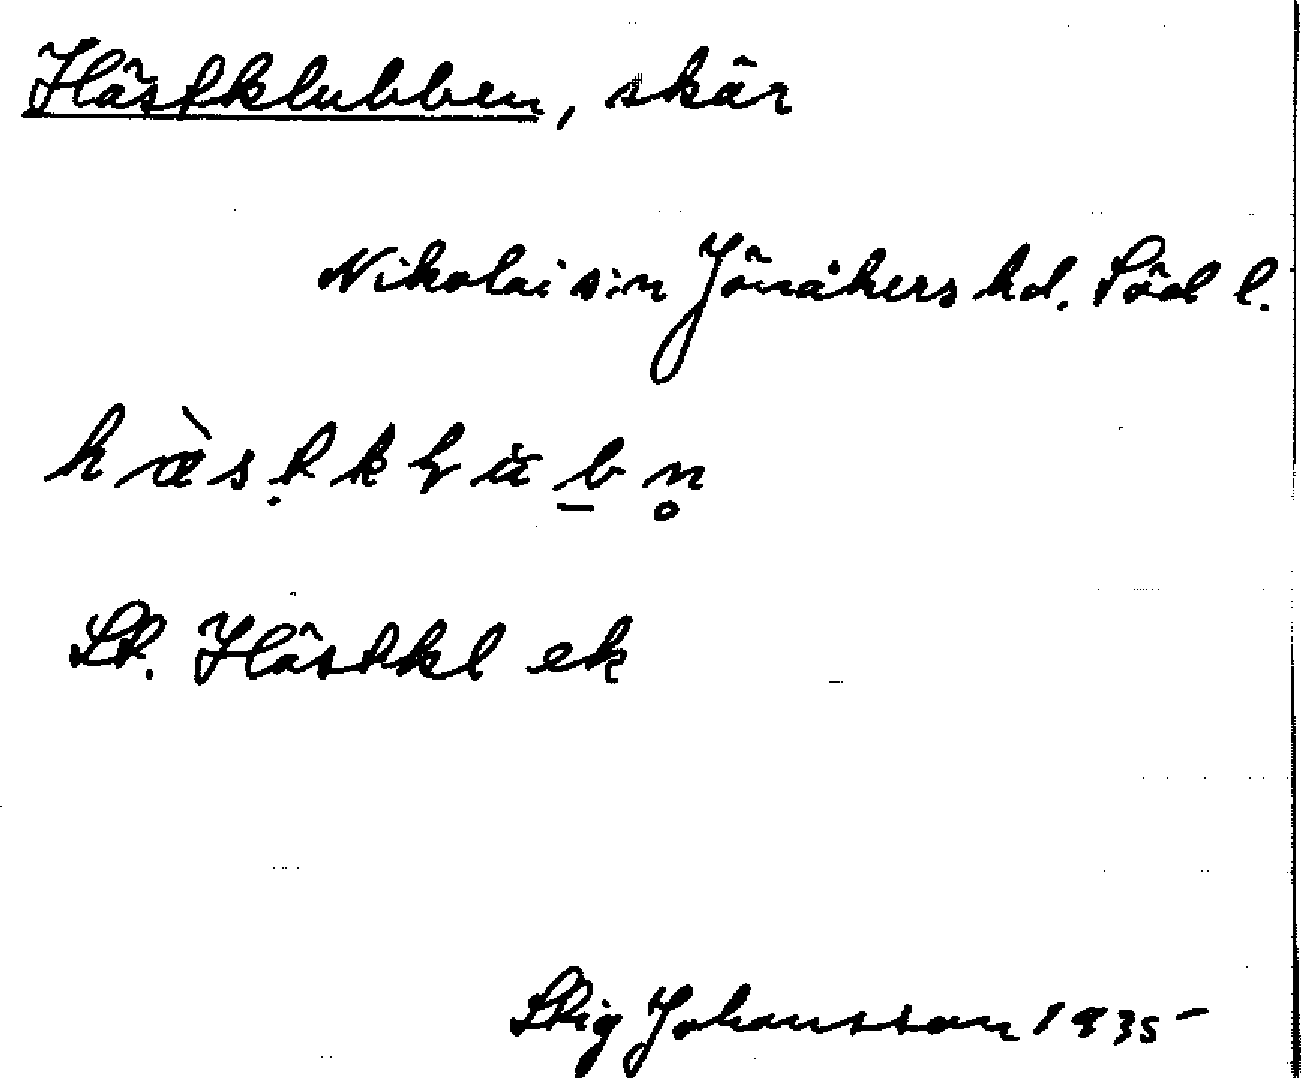 Hästklubben, skär
Nikolai s:n Jönåkers hd. Söd l.
St. Hästkl ek
Stig Johansson 1935